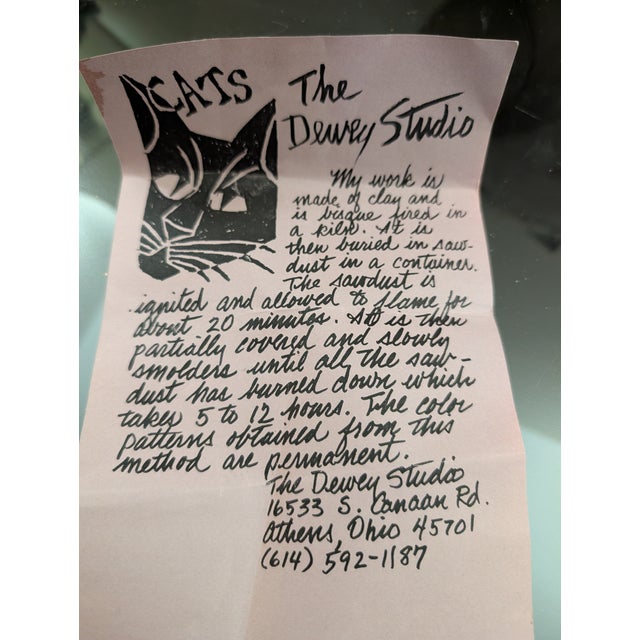 CATS
The
Dewey Studio
My work is
made of clay and
is bisque fired in
a kiln. It is
then buried in saw-
dust in a container.
The sawdust is
ignited and allowed to flame for
about 20 minutes. It is then
partially covered and slowly
smolders until all the saw-
dust has burned down which
takes 5 to 12 hours. The color
patterns obtained from this
method are permanent.
The Dewey Studio
16533 S. Canaan Rd.
Athens, Ohio 45701
(614) 592-1187